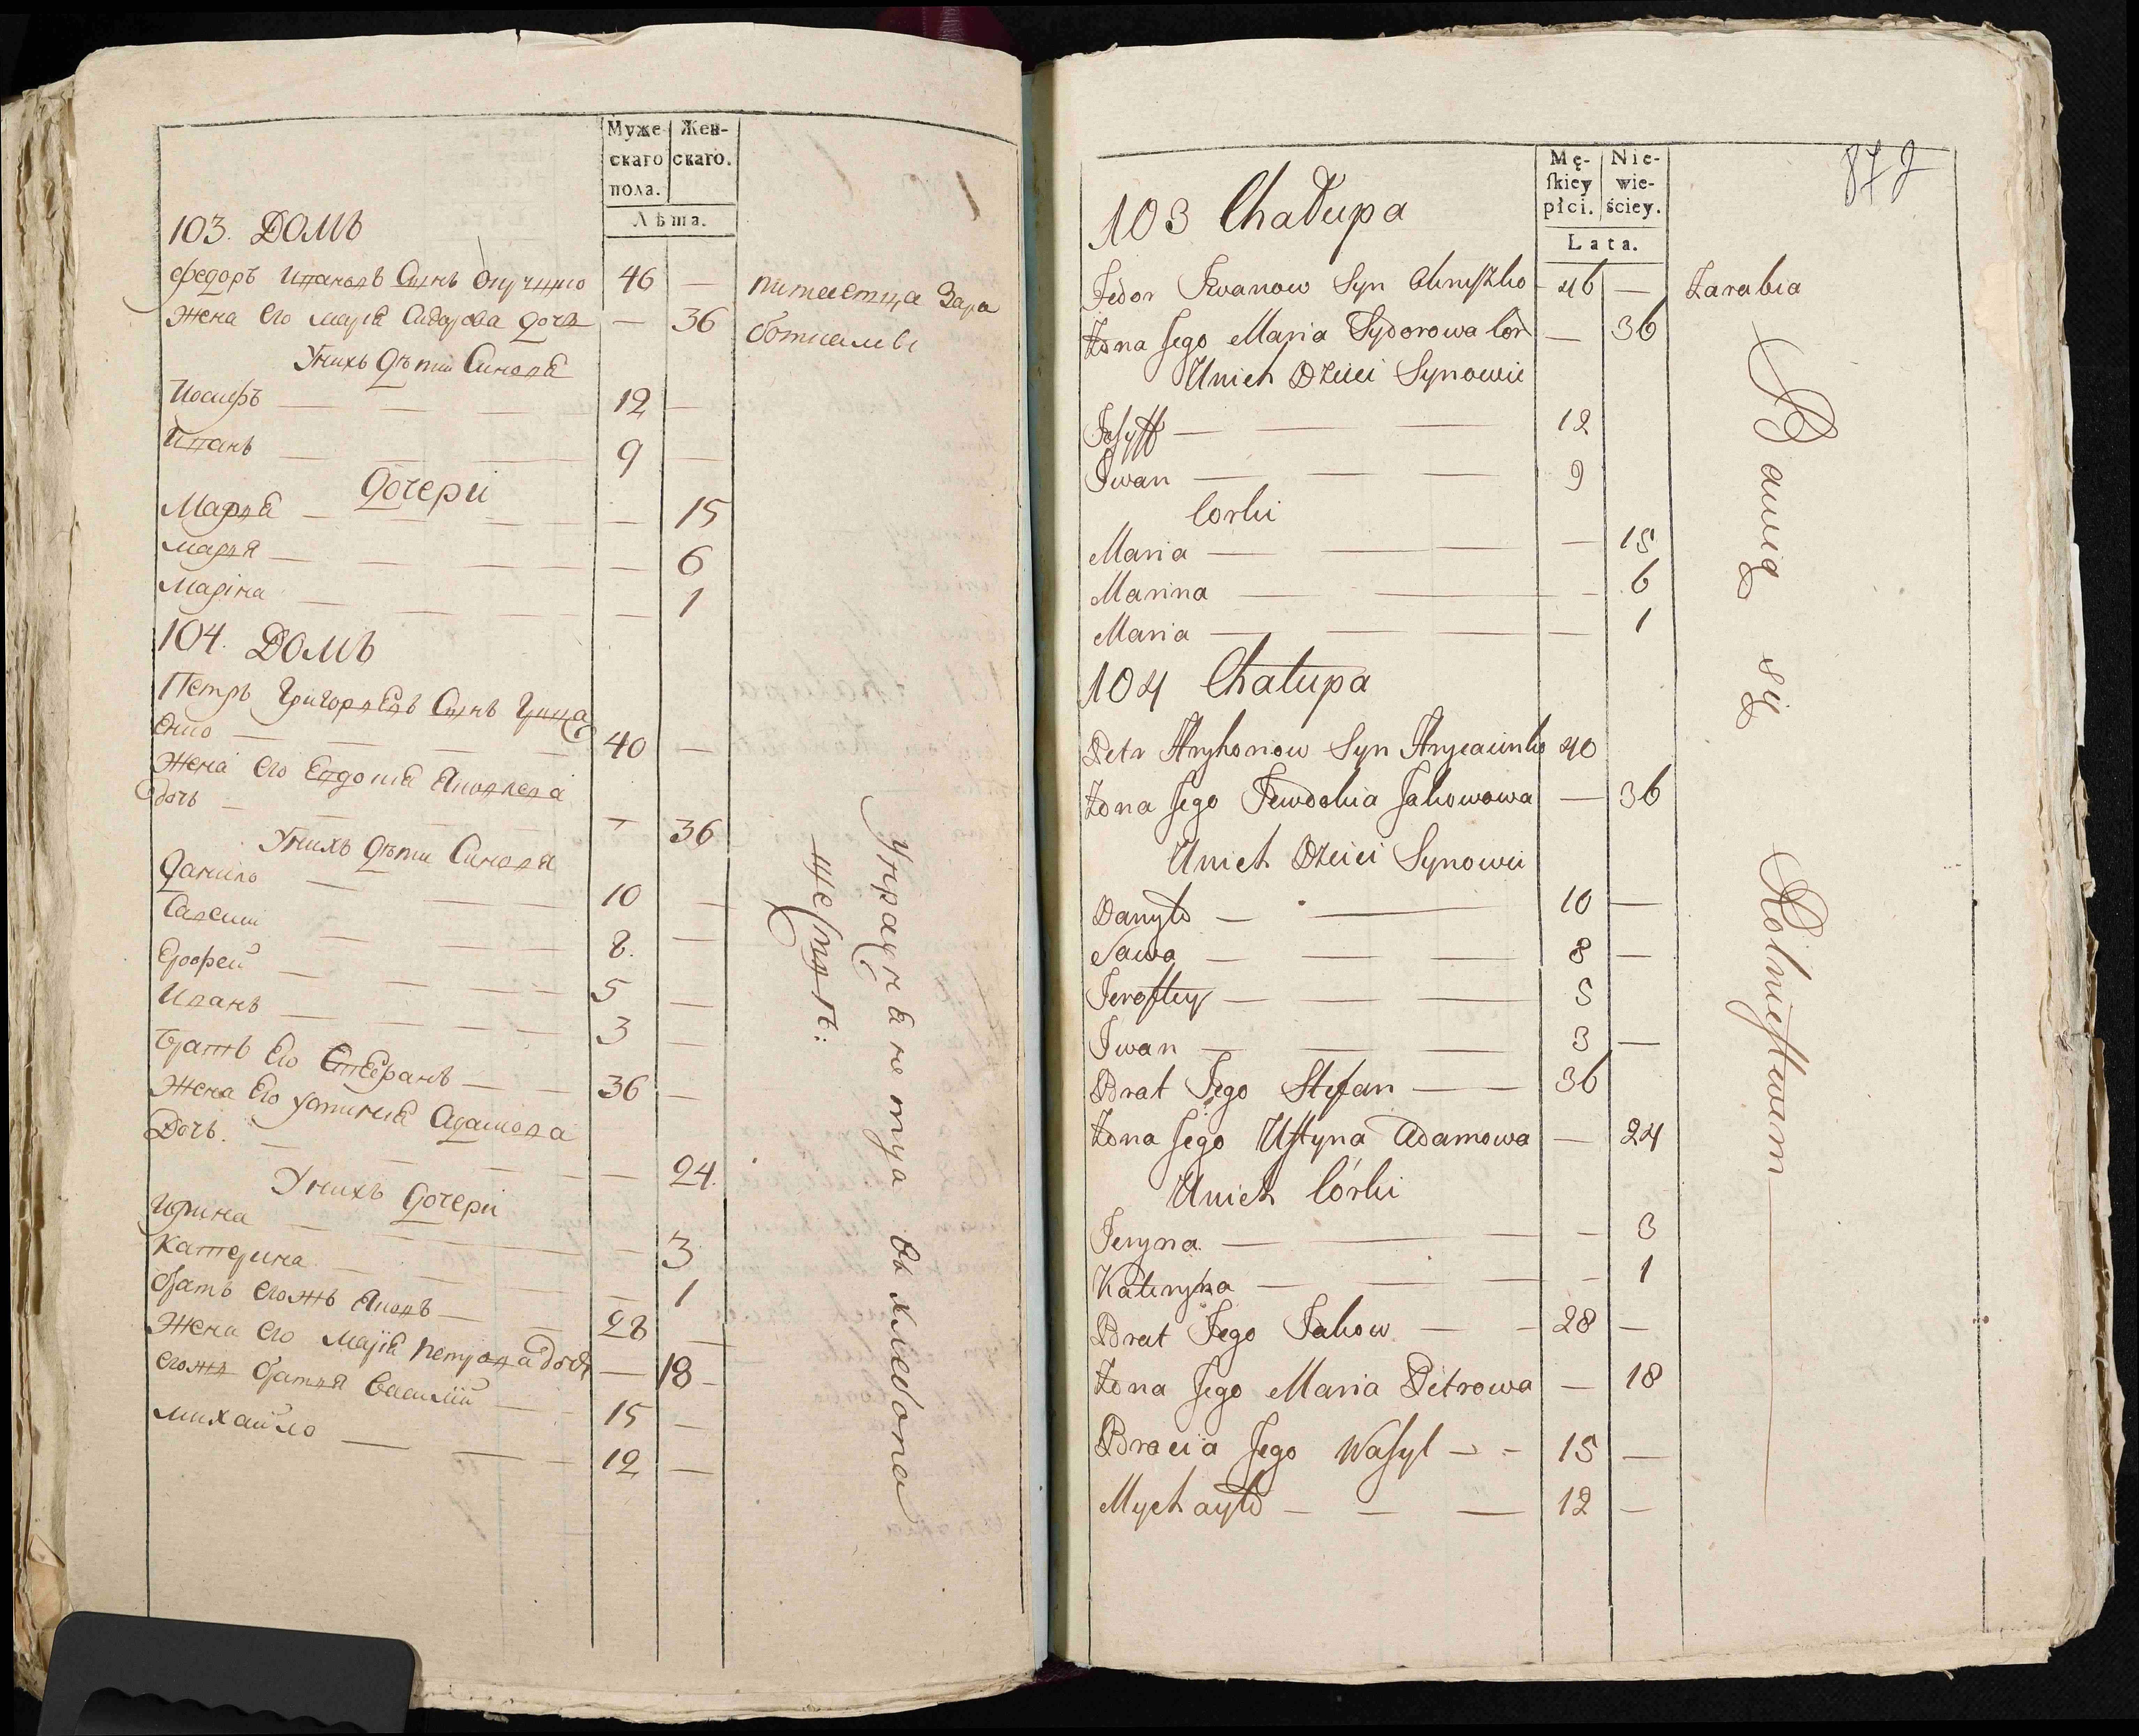 Муже-
скаго
пола.
Жен-
скаго.
Лѣта.
103. Домъ
Федоръ Ивановъ Сынъ 46 — питается Зара
Жена Его Марія Сидорова дочь — 36 ботками
У нихъ дѣти Синовя
Иосифъ — — — 12 —
Иванъ — — — 9 —
Дочери
Марья — — — — 15
Марья — — — — 6
Марина — — — — 1
104. Домъ
Петръ Григорьевъ Сынъ Грица
енко — — — 40 —
Жена Его Евдокия Яковлева
дочь — — — — 36
У нихъ дѣти Синовя
Данило — — — 10 —
Савелий — — — 8. —
Ерофей — — — 5 —
Иванъ — — — 3 —
Братъ Его Стефанъ — — 36 —
Жена Его Устиния Адамова
Дочь. — — — — 24.
У нихъ Дочери
Ирина — — — — 3
Катерина — — — 1
братъ Егожъ Яковъ — — 28 —
Жена Его Марія Петрова дочь — 18 —
Егожъ братья Василий — — 15 —
Михайло — — — 12 —
Упражняется въ хлебопа
шествѣ:
872
Mę-
skiey
płci.
Nie-
wie-
ściey.
Lata.
103 Chałupa
Fedor Iwanow Syn 46 — Zarabia
Żona Jego Maria Sydorowa Cor — 36
U nich Dzieci Synowie
Josyff — — — 12
Iwan — — — 9
Corki
Maria — — — — 15
Marina — — — 6
Maria — — — — 1
104 Chałupa
Petr Hryhorow Syn Hrycaienko 40
Żona Jego Jewdokia Jakowowa — 36
U nich Dzieci Synowie
Danyło — — 10 —
Sawa — — — 8 —
Jeroffey — — — 5
Iwan — — — 3 —
Brat Jego Stefan — — 36
Żona Jego Ustyna Adamowa — 24
U nich Córki
Jeryna — — — — 3
Kateryna — — — — 1
Brat Jego Jakow — — 28 —
Żona Jego Maria Petrowa — 18
Bracia Jego Wasyl — - 15 —
Mychayło — — — 12 —
Bawią się Rolnictwem